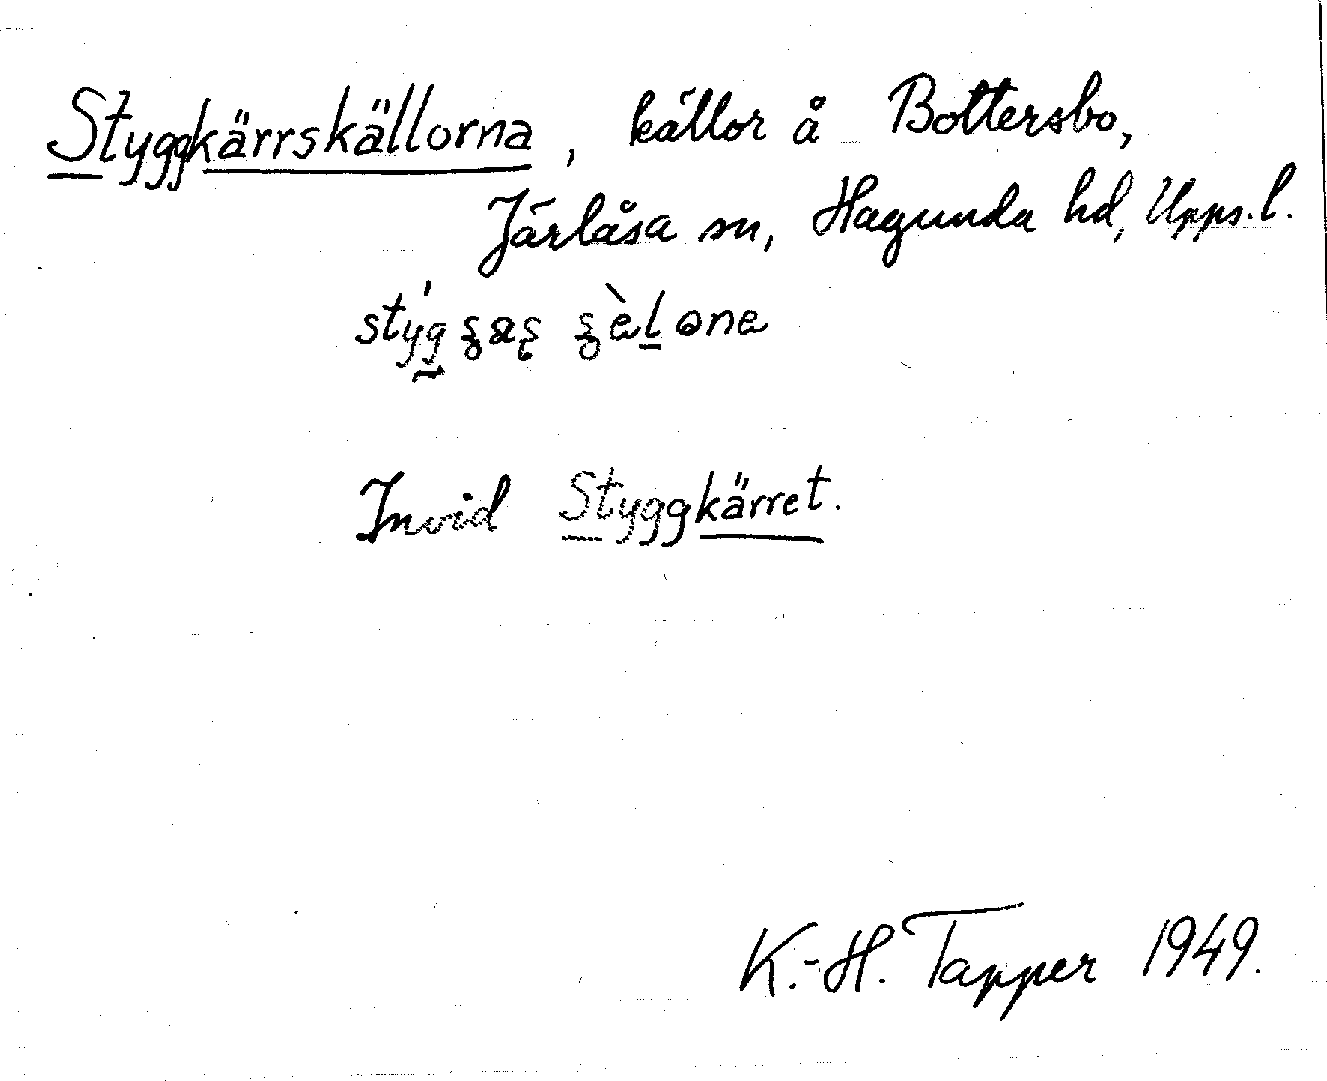 Styggkärrskällorna, källor å Bottersbo,
Järlåsa sn, Hagunda hd, Upps. l.
Invid Styggkärret.
K.-H. Tapper 1949.